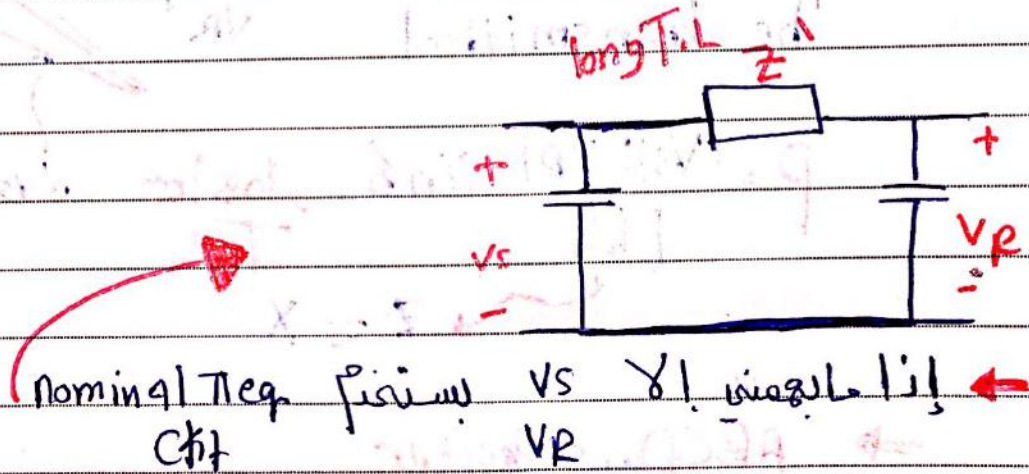 long T.L
Z\
+
+
Vs
VR
-
-
إذا مابهمني إلا Vs بستخدم nominal π eq.
VR
Ckt